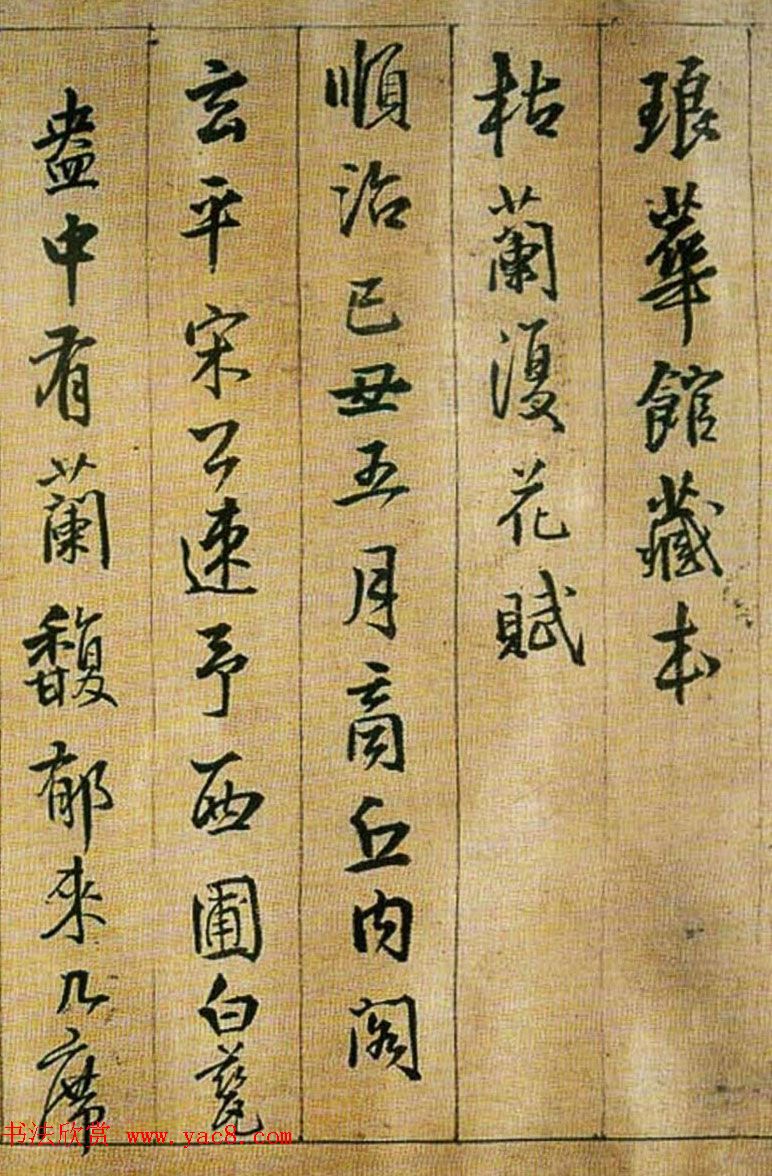 琅華館藏本
枯蘭復花賦
順治己丑五月商丘內閣
玄平宋公速予西圃白瓷
盎中有蘭馥郁來几席
书法欣赏 www.yac8.com